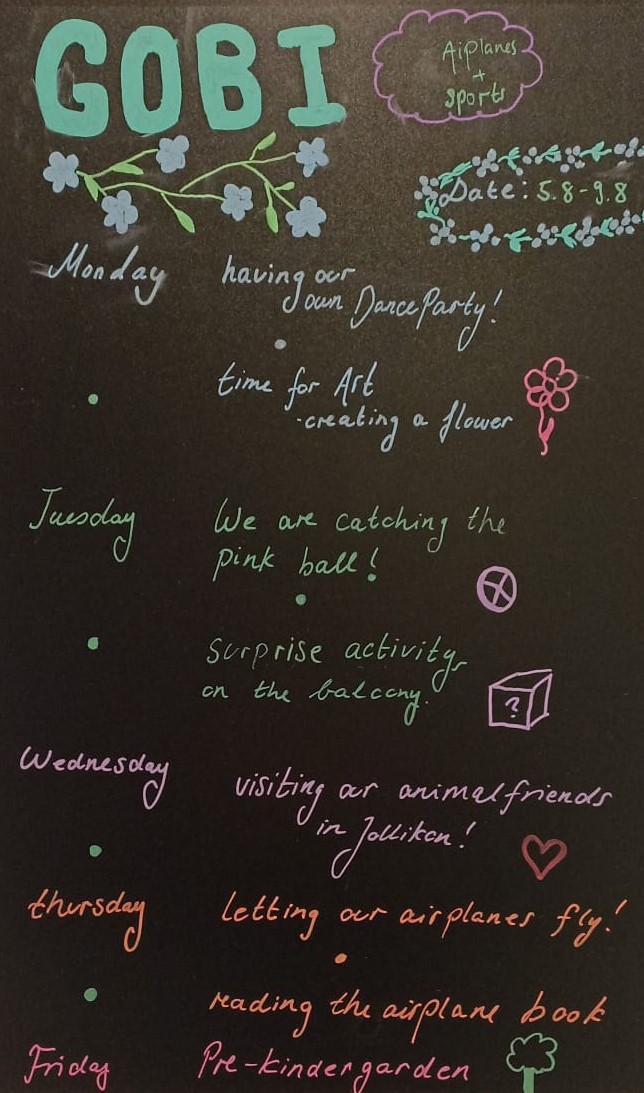 GOBI
Airplanes
+
sports
Date: 5.8-9.8
Monday
having our
own Dance Party!
time for Art
creating a flower
Tuesday
We are catching the
pink ball!
surprise activity
on the balcony.
?
Wednesday
visiting our animal friends
in Zollikon!
thursday
letting our airplanes fly!
reading the airplane book
Friday
Pre-kindergarden